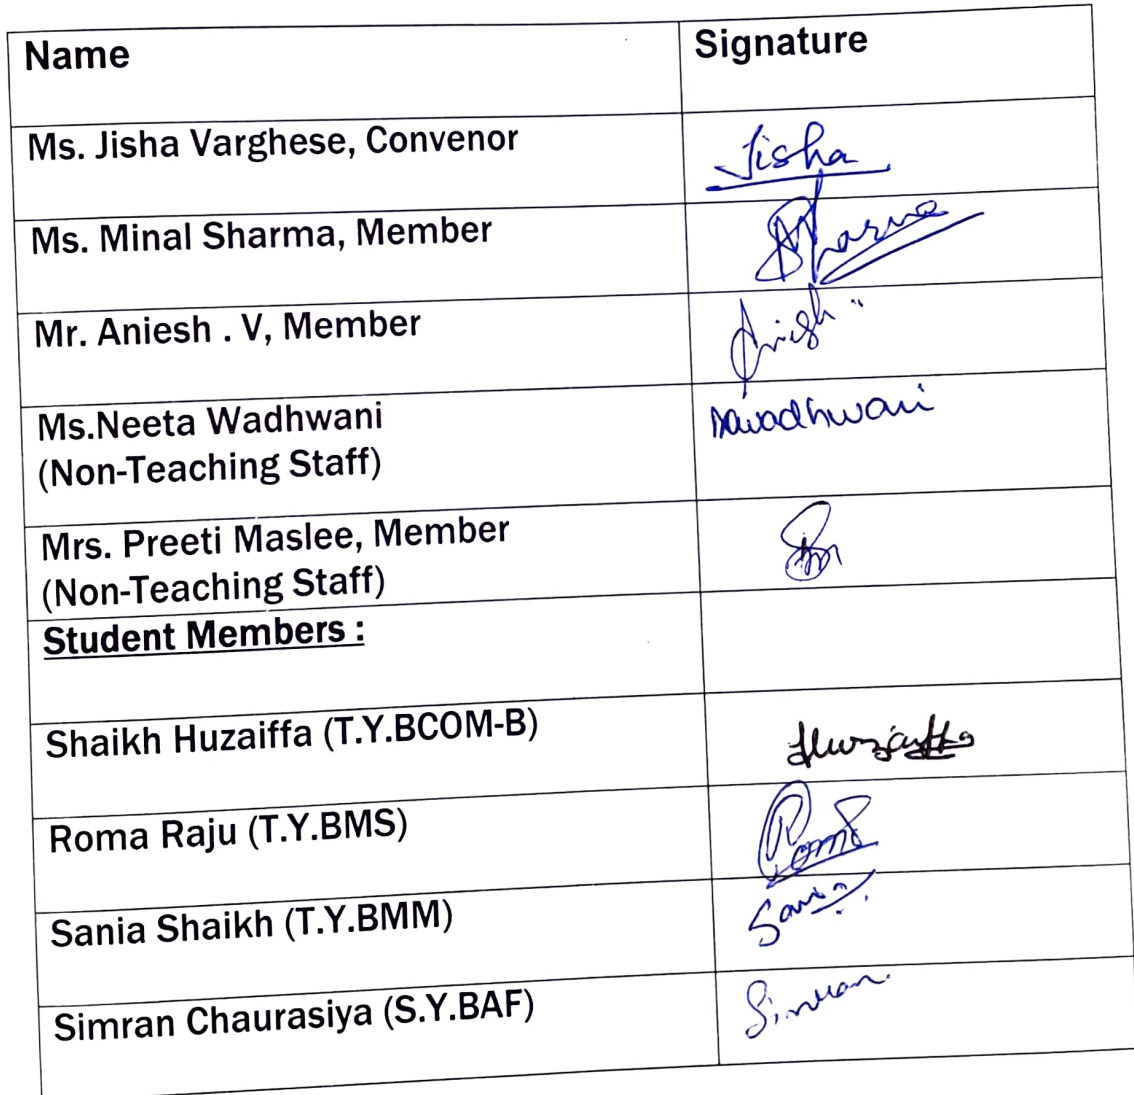 Name Signature
Ms. Jisha Varghese, Convenor Jisha
Ms. Minal Sharma, Member Sharma
Mr. Aniesh . V, Member
Ms.Neeta Wadhwani
(Non-Teaching Staff)
Mrs. Preeti Maslee, Member
(Non-Teaching Staff)
Student Members :
Shaikh Huzaiffa (T.Y.BCOM-B) Huzaiffa
Roma Raju (T.Y.BMS)
Sania Shaikh (T.Y.BMM) Sania
Simran Chaurasiya (S.Y.BAF) Simran